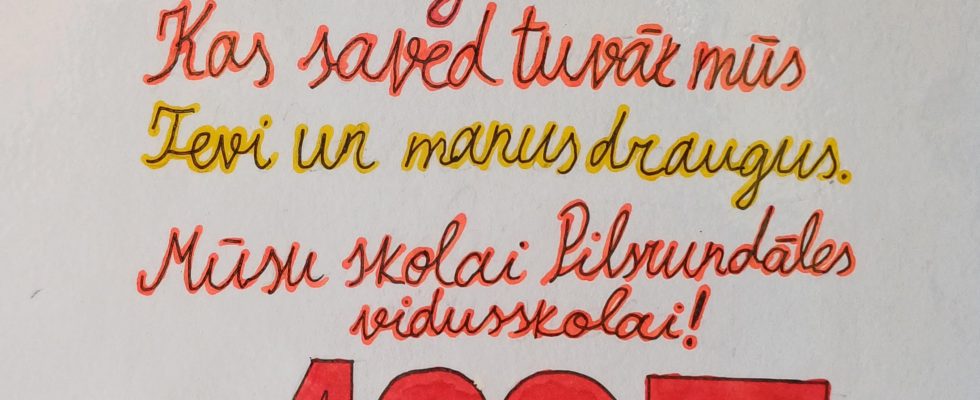 Kas saved tuvāk mūs
Tevi un manus draugus.
Mūsu skolai Pilsrundāles
vidusskolai!